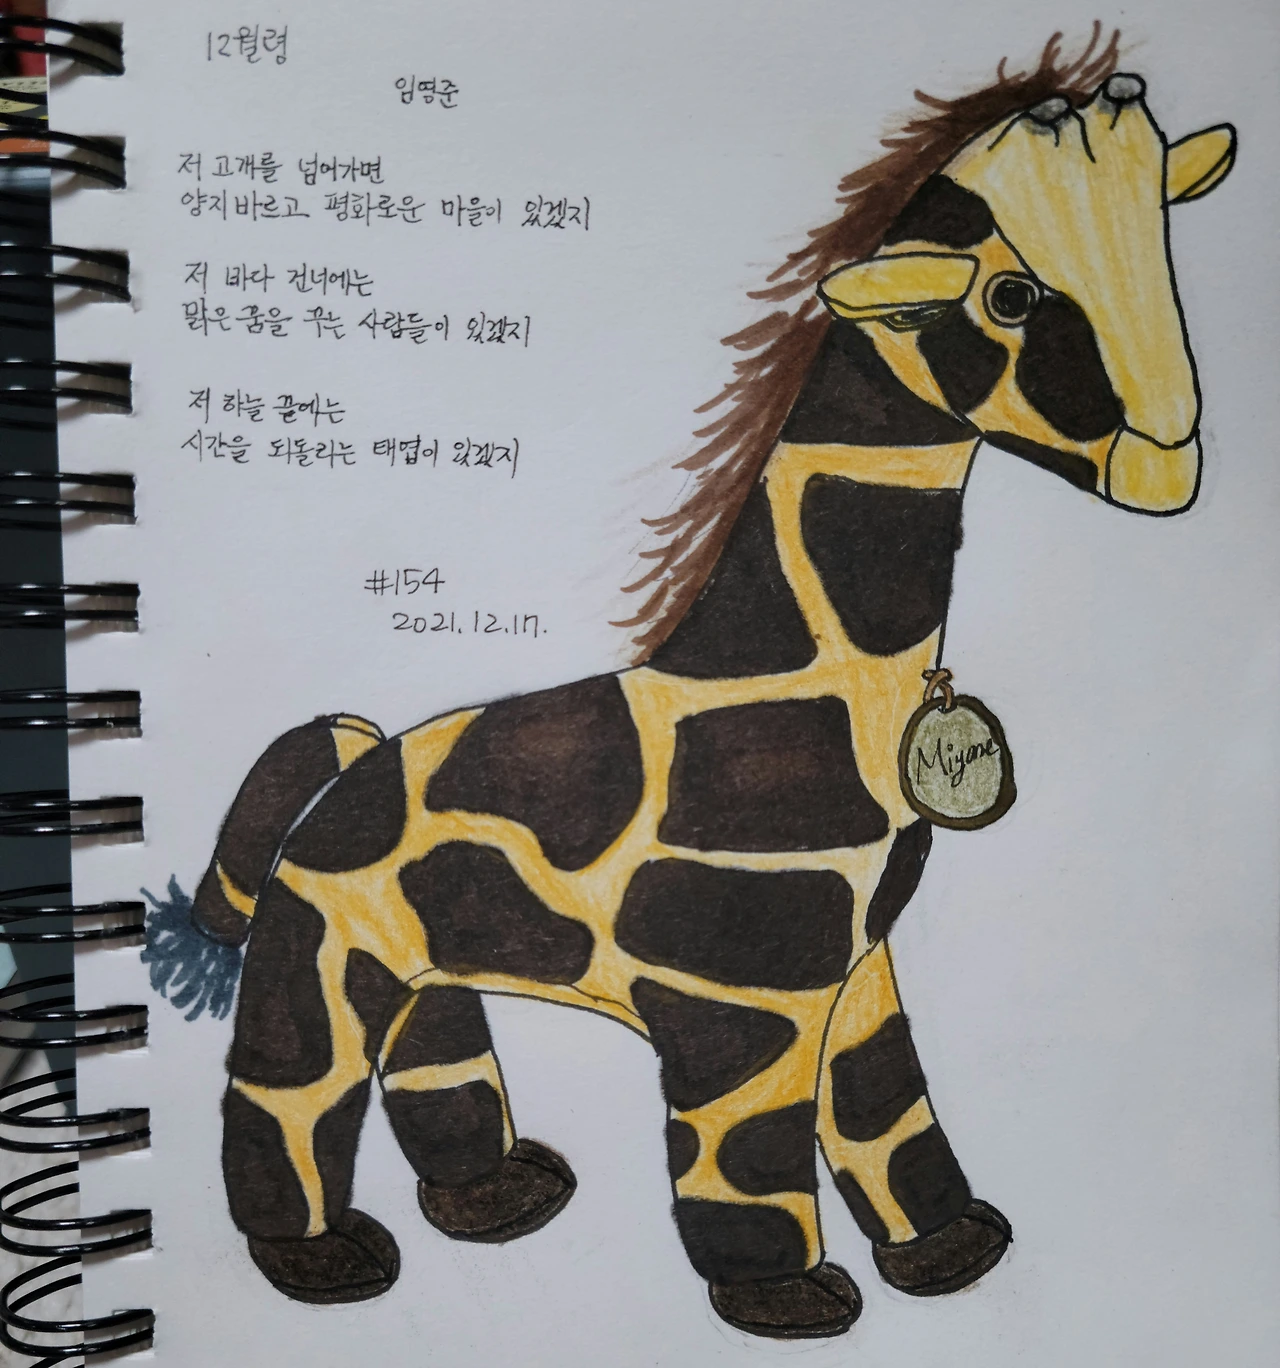 12월령
임영준
저 고개를 넘어가면
양지바르고 평화로운 마을이 있겠지
저 바다 건너에는
맑은 꿈을 꾸는 사람들이 있겠지
저 하늘 끝에는
시간을 되돌리는 태엽이 있겠지
#154
2021.12.17.
Miyone